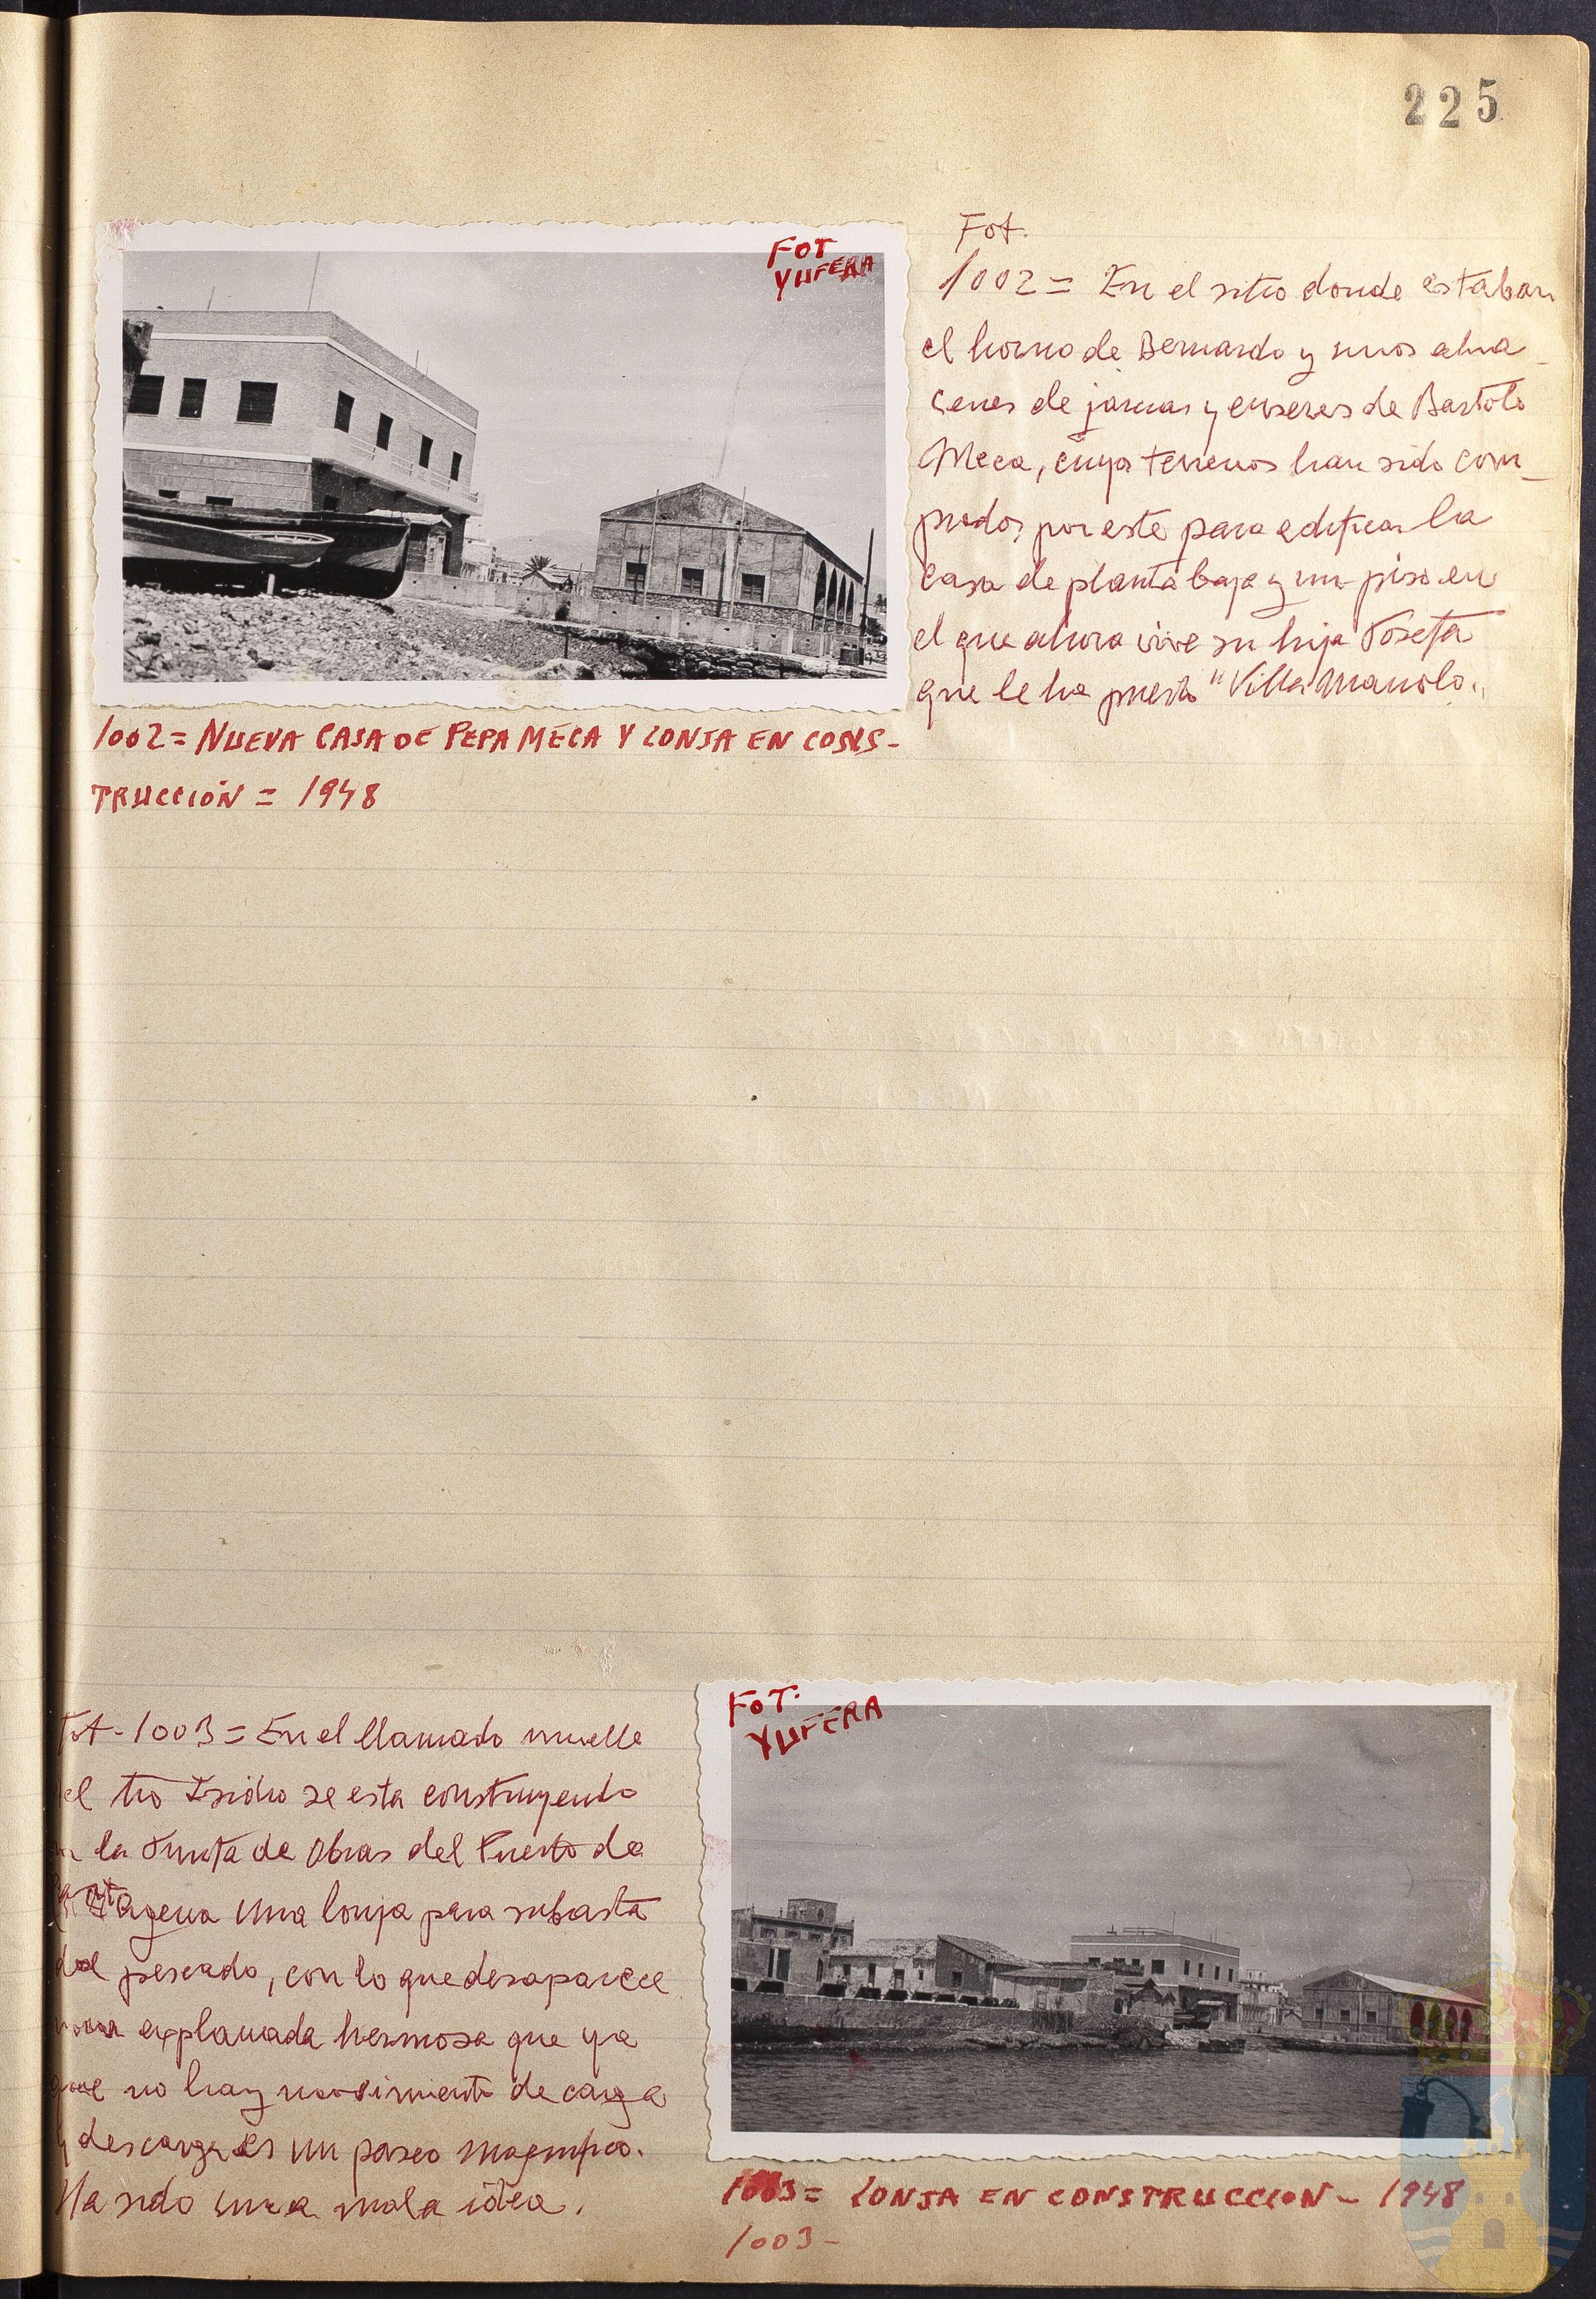 225
FOT
YUFERA
Fot.
1002 = En el sitio donde estaban
el horno de Bernardo y unos alma-
cenes de jarcias y enseres de Bartolo
Meca, cuyos terrenos han sido com-
prados por este para edificar la
casa de planta baja y un piso en
el que ahora vive su hija Josefa
que le ha puesto "Villa Manolo."
1002 = NUEVA CASA DE PEPA MECA Y LONJA EN CONS-
TRUCCIÓN = 1948
Fot - 1003 = En el llamado muelle
del tio Isidro se esta construyendo
la Junta de Obras del Puerto de
Cartagena una lonja para subasta
del pescado, con lo que desaparece
una explanada hermosa que ya
que no hay movimiento de carga
y descarga es un paseo magnifico.
Ha sido una mala idea.
FOT.
YUFERA
1003 = LONJA EN CONSTRUCCION - 1948
1003 -